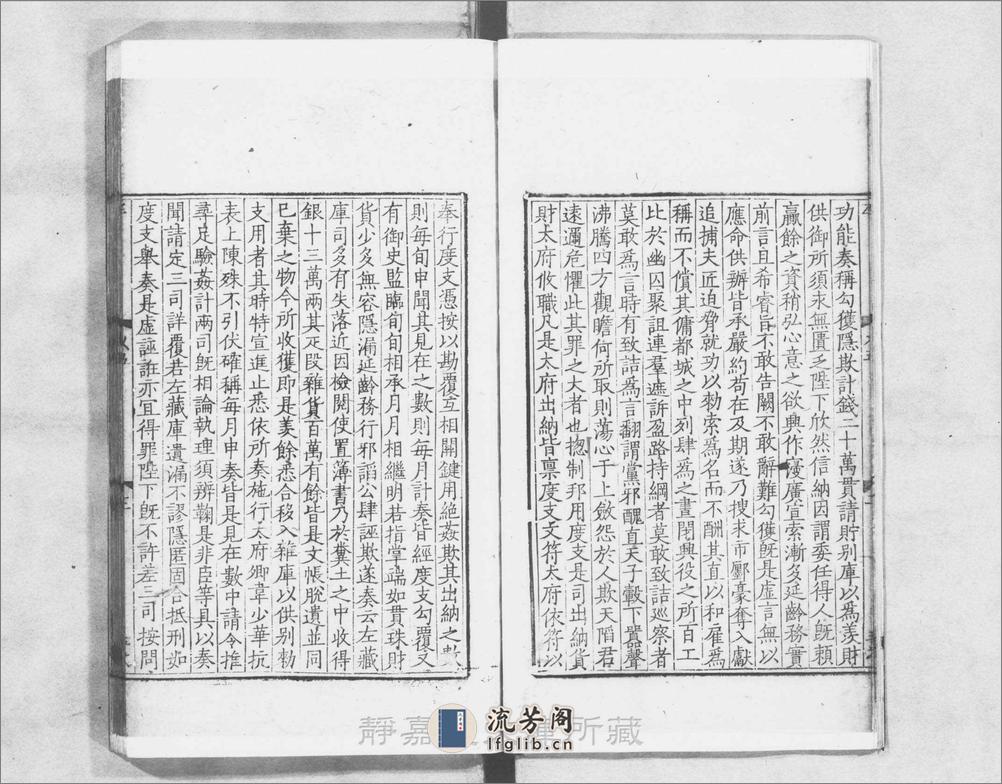 功能奏稱勾獲隱欺計錢二十萬貫請貯别庫以爲羡財
供御所須永無匱乏陛下欣然信納因謂委任得人旣頼
贏餘之資稍弘心意之欲興作寖廣宣索漸多延齡務實
前言且希睿旨不敢告闕不敢辭難勾獲旣是虛言無以
應命供辦皆承嚴約苟在及期遂乃搜求市鄽豪奪入獻
追捕夫匠迫脅就功以勑索爲名而不酬其直以和雇爲
稱而不償其傭都城之中列肆爲之晝閉興役之所百工
比於幽囚聚詛連羣遮訴盈路持綱者莫敢致詰巡察者
莫敢爲言時有致詰爲言翻謂黨邪醜直天子轂下囂聲
沸騰四方觀瞻何所取則蕩心于上斂怨於人欺天陷君
遠邇危懼此其罪之大者也揔制邦用度支是司出納貨
財太府攸職凡是太府出納皆禀度支文符太府依符以
奉行度支憑按以勘覆互相關鍵用絶姦欺其出納之數
則每旬申聞其見在之數則每月計奏皆經度支勾覆又
有御史監臨旬旬相承月月相繼明若指掌端如貫珠財
貨少多無容隱漏延齡務行邪謟公肆誣欺遂奏云左藏
庫司多有失落近因檢閱使置簿書乃於糞土之中收得
銀十三萬兩其疋段雜貨百萬有餘皆是文帳脫遺並同
已棄之物今所收獲即是羡餘悉合移入雜庫以供别勑
支用者其時特宣進止悉依所奏施行太府卿韋少華抗
表上陳殊不引伏確稱每月申奏皆是見在數中請令推
尋足驗姦計兩司旣相論執理須辨鞫是非臣等具以奏
聞請定三司詳覆若左藏庫遺漏不謬隱匿固合抵刑如
度支舉奏是虛誣誑亦宜得罪陛下旣不許差三司按問
靜嘉 所藏
流芳阁
lfglib.cn